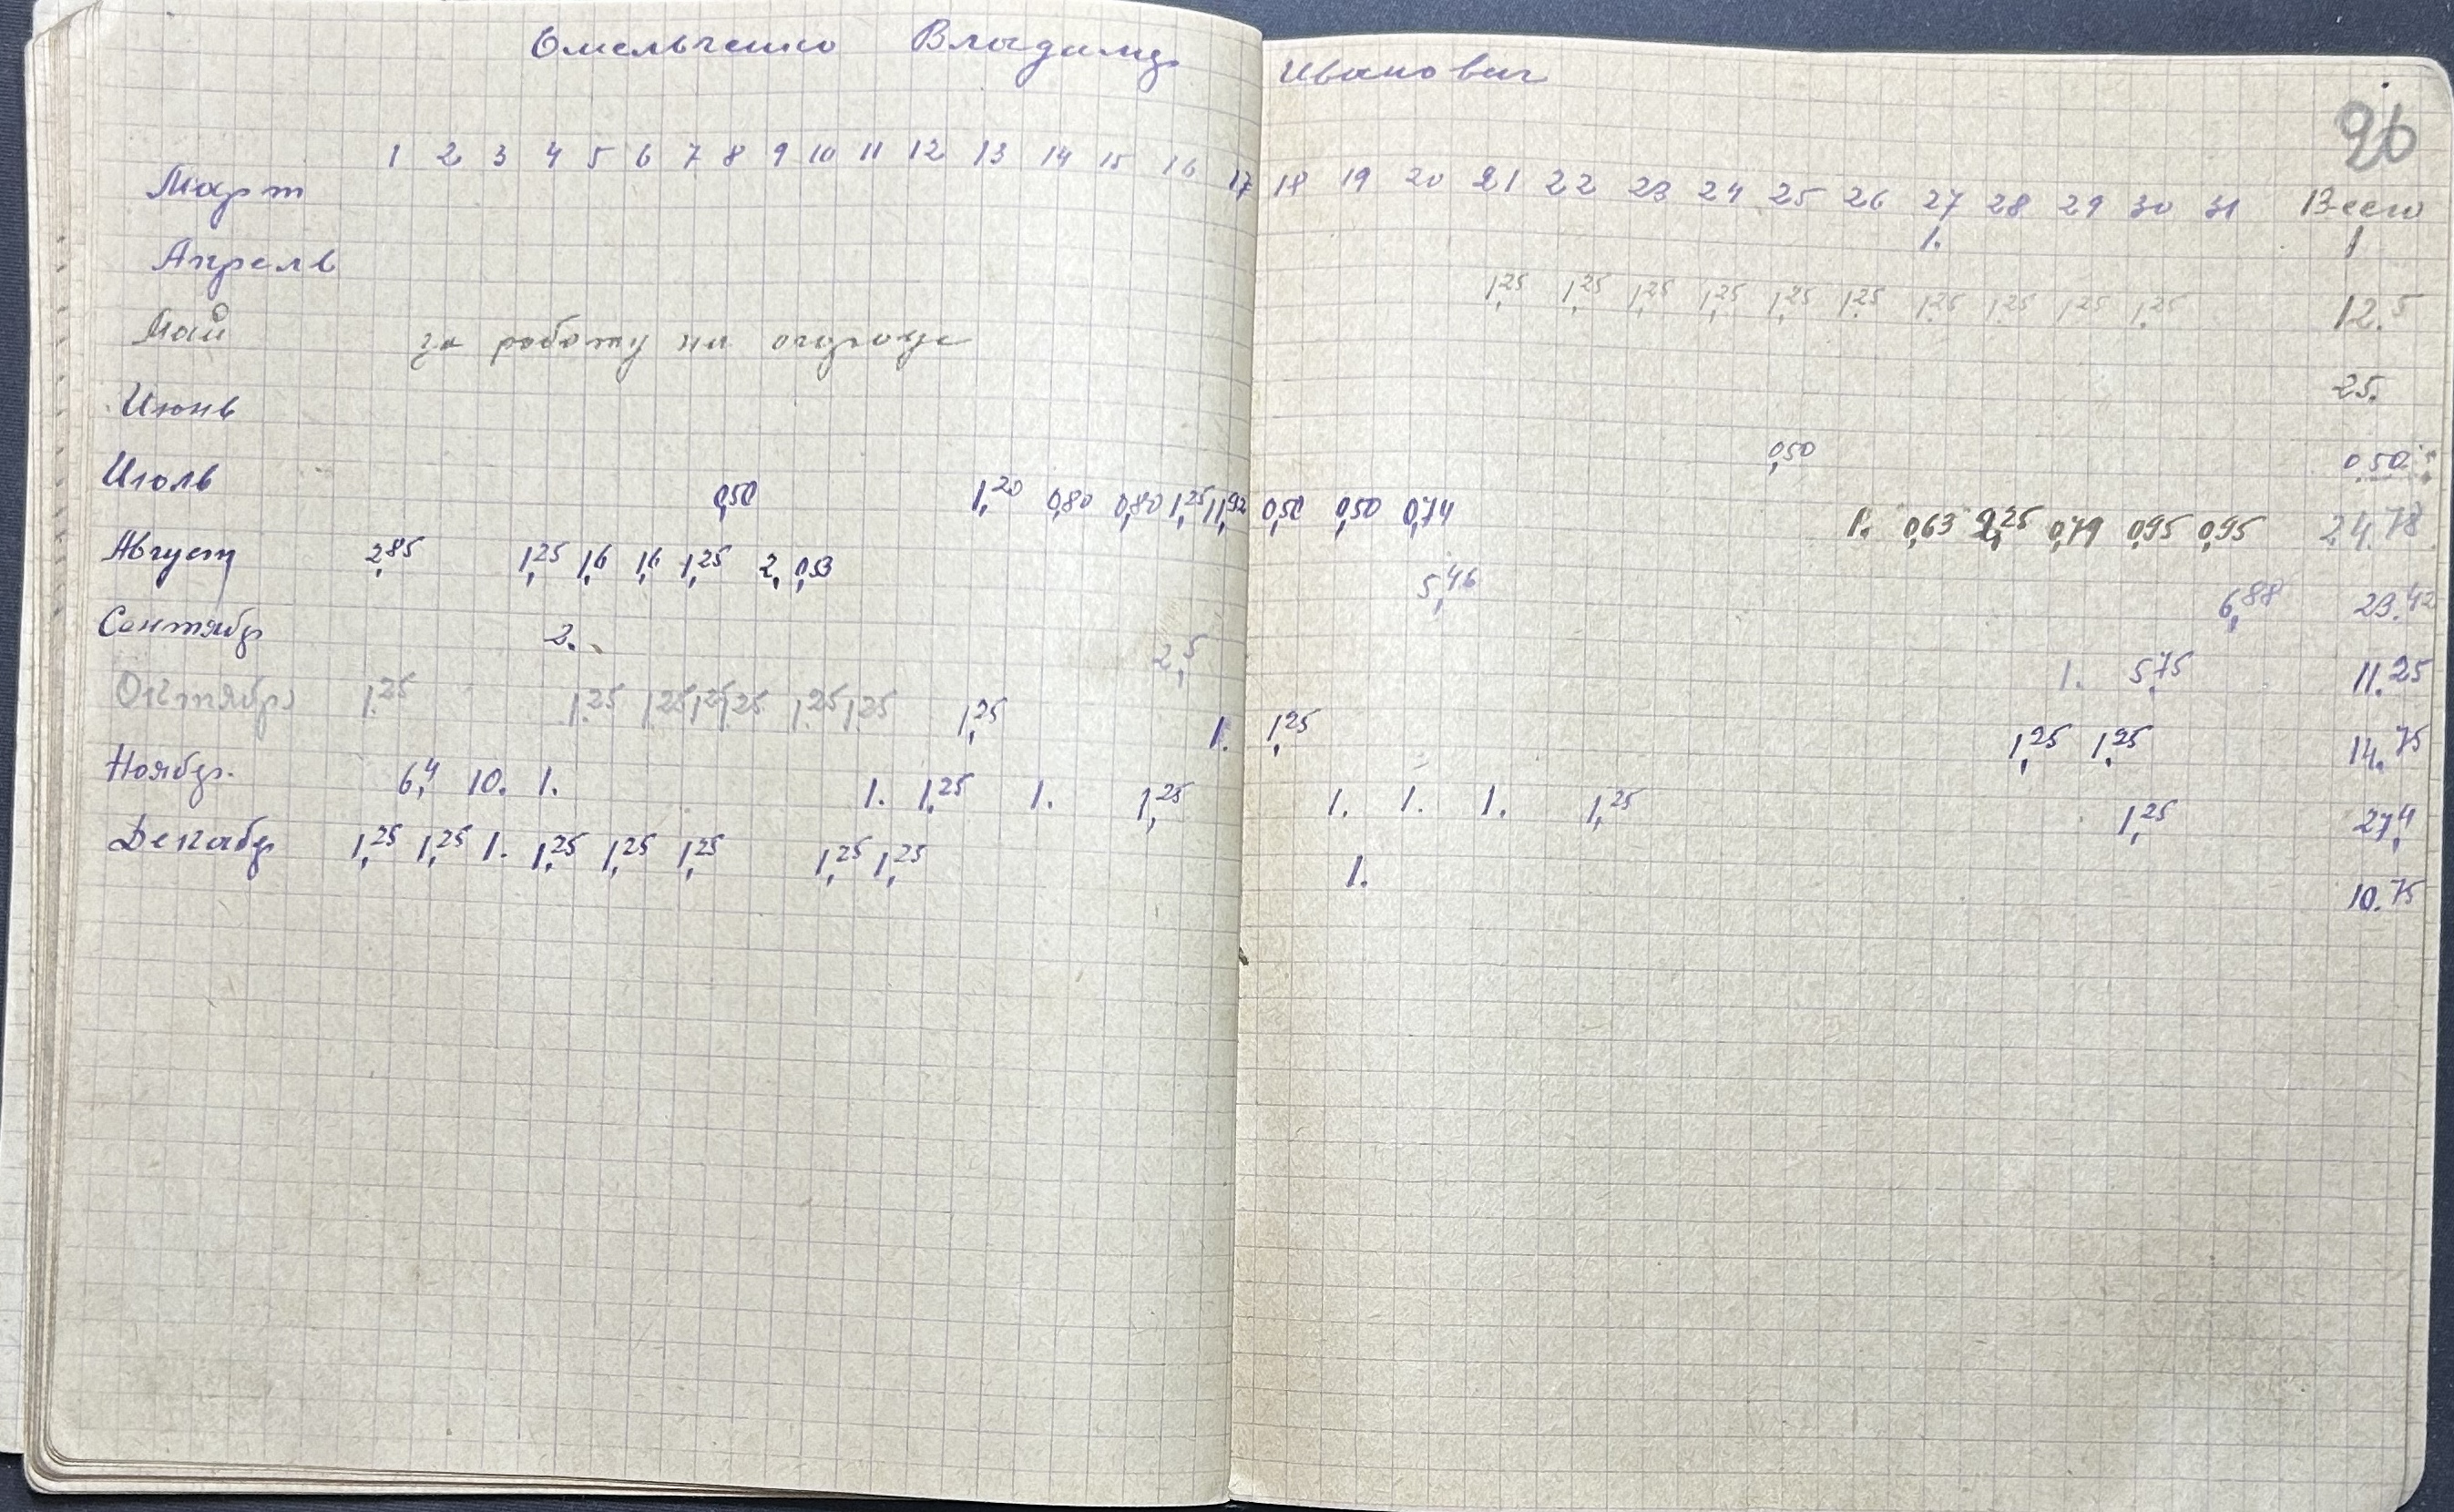 Омельченко Владимир Иванович
26
1 2 3 4 5 6 7 8 9 10 11 12 13 14 15 16 17 18 19 20 21 22 23 24 25 26 27 28 29 30 31 Всего
Март 1. 1
Апрель 1,25 1,25 1,25 1,25 1,25 1,25 1,25 1,25 1,25 1,25 12.5
Май за работу на огороде 25.
Июнь 0,50 0.50
Июль 0,50 1,20 0,80 0,80 1,25 11,92 0,50 0,50 0,74 1. 0,63 2,25 0,79 0,95 0,95 24.78
Август 2,85 1,25 1,6 1,6 1,25 2, 0,53 5,46 6,88 23.42
Сентябр 2. 2,5 1. 5,75 11.25
Октябрь 1.25 1.25 1.25 1.25 1.25 1.25 1.25 1,25 1. 1,25 1,25 1,25 14.75
Ноябр. 6,4 10. 1. 1. 1,25 1. 1,25 1. 1. 1. 1,25 1,25 27,4
Декабр 1,25 1,25 1. 1,25 1,25 1,25 1,25 1,25 1. 10.75